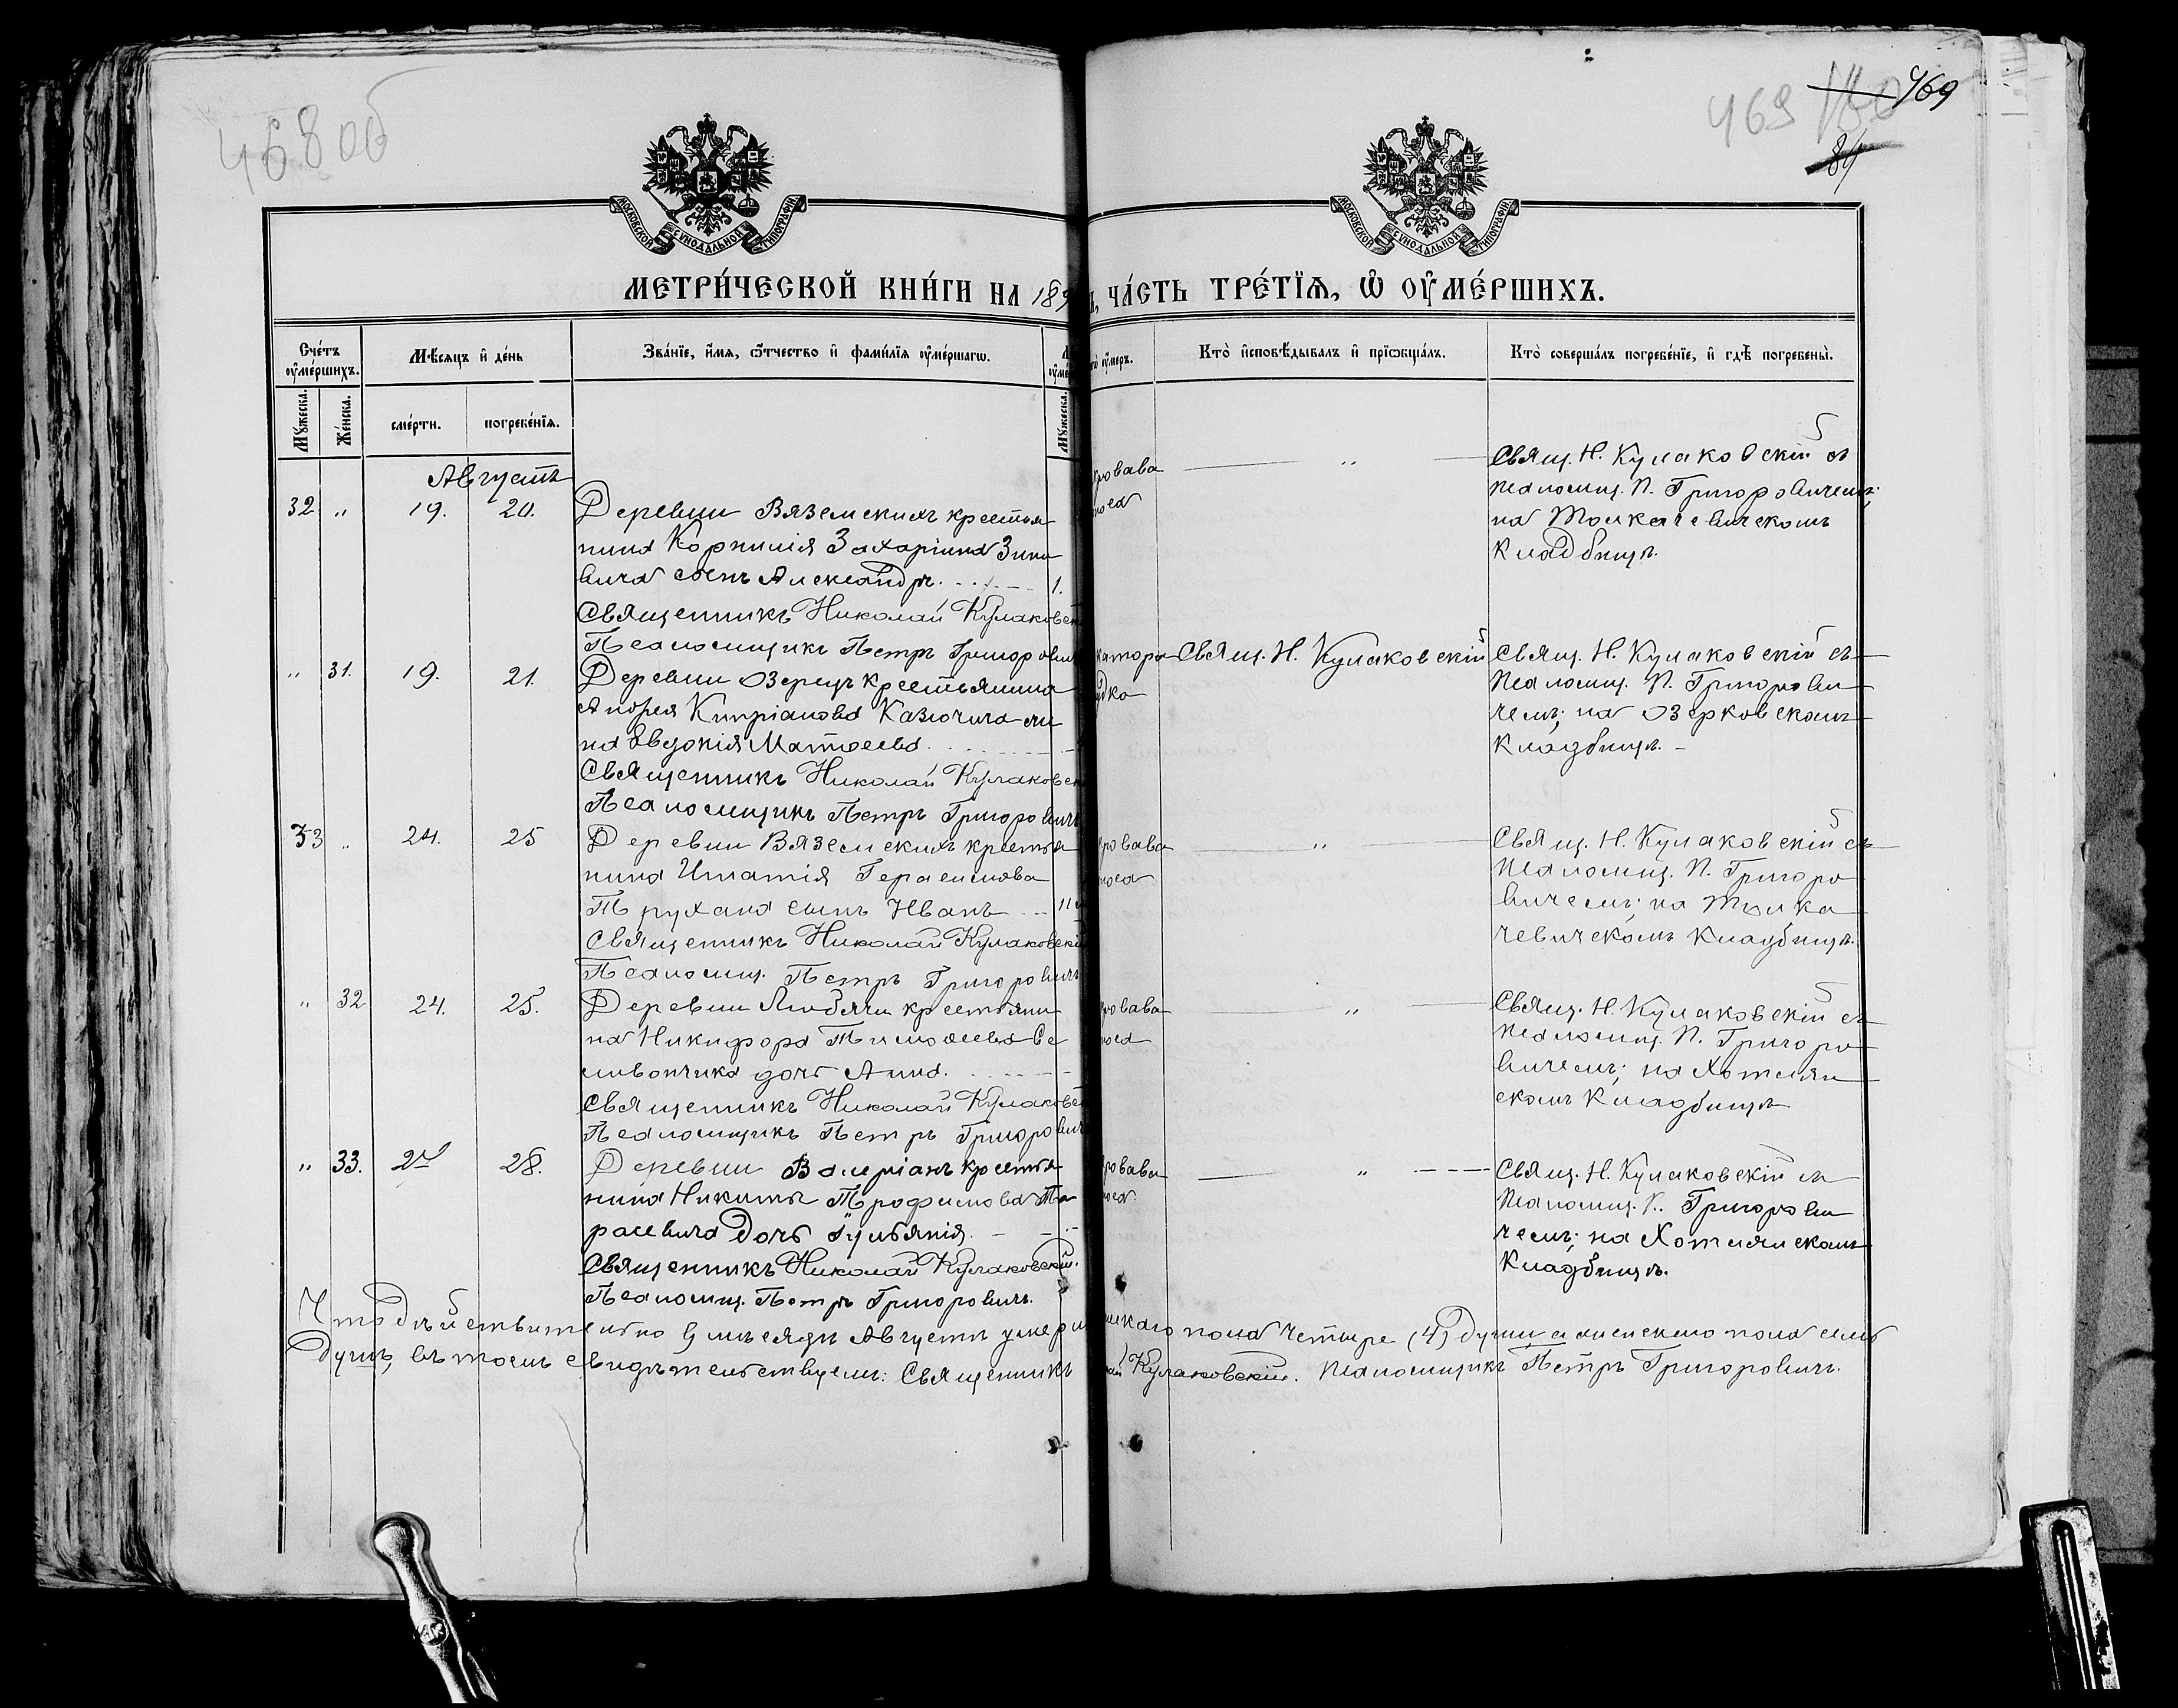 468 об
469
469
84
МОСКОВСКОЙ СѴНОДАЛЬНОЙ ТИПОГРАФІИ
МОСКОВСКОЙ СѴНОДАЛЬНОЙ ТИПОГРАФІИ
МЕТРИ́ЧЕСКОЙ КНИ́ГИ НА 189
ЧА́СТЬ ТРЕ́ТЇѦ, Ѿ ОУ҆МЕ́РШИХЪ.
Сче́тъ оу҆ме́ршихъ.
Мꙋ́жеска.
Же́нска.
Мѣ́сѧцъ и҆ де́нь
сме́рти.
погребе́нїѧ.
Зва́нїе, и҆́мѧ, ѻ҆́тчество и҆ фами́лїѧ оу҆ме́ршагѡ.
Мꙋ́жеска.
оу҆́меръ.
Кто̀ и҆сповѣ́дывалъ и҆ прїѡбща́лъ.
Кто̀ соверша́лъ погребе́нїе, и҆ гдѣ̀ погребены̀.
Августъ
32 " 19. 20.
Деревни Вяземскихъ крестья
нина Корнилія Захаріина Зино
вича сынъ Александръ. 1.
Священникъ Николай Кулаковск
Псаломщикъ Петръ Григорович
кровава
"
Свящ. Н. Кулаковскій съ
псаломщ. П. Григоровичемъ;
на Толкачевичскомъ
кладбищѣ.
" 31. 19. 21.
Деревни Озерецъ крестьянина
Андрея Кипріанова Казючица же
на Евдокія Матѳеева
Священникъ Николай Кулаковск
Псаломщикъ Петръ Григоровичъ
Свящ. Н. Кулаковскій
Свящ. Н. Кулаковскій съ
псаломщ. П. Григорови
чемъ; на Озерковскомъ
кладбищѣ.
33 " 24. 25
Деревни Вяземскихъ крестья
нина Игнатія Герасимова
Трухана сынъ Иванъ
Священникъ Николай Кулаковскій
Псаломщ. Петръ Григоровичъ
ровава
"
Свящ. Н. Кулаковскій съ
псаломщ. П. Григоро
вичемъ; на Толка
чевичскомъ кладбищѣ.
" 32 24. 25.
Деревни Любячи крестьяни
на Никифора Тимоѳеева Се
ливончика дочь Анна.
Священникъ Николай Кулаковск
Псаломщикъ Петръ Григорович
ровава
"
Свящ. Н. Кулаковскій съ
псаломщ. П. Григоро
вичемъ; на Хотлян
скомъ кладбищѣ
" 33. 28.
Деревни Валеріанъ крестья
нина Никиты Трофимова Та
расевича дочь Іульянія.
Священникъ Николай Кулаковскій.
Псаломщ. Петръ Григоровичъ.
ровава
"
Свящ. Н. Кулаковскій съ
псаломщ. П. Григорови
чемъ; на Хотлянскомъ
кладбищѣ.
Что дѣйствительно въ мѣсяцѣ Августѣ умерло
жскаго пола четыре (4) души, а женскаго пола семь
душъ, въ томъ свидѣтельствуемъ: Священникъ
ай Кулаковскій. Псаломщикъ Петръ Григоровичъ.